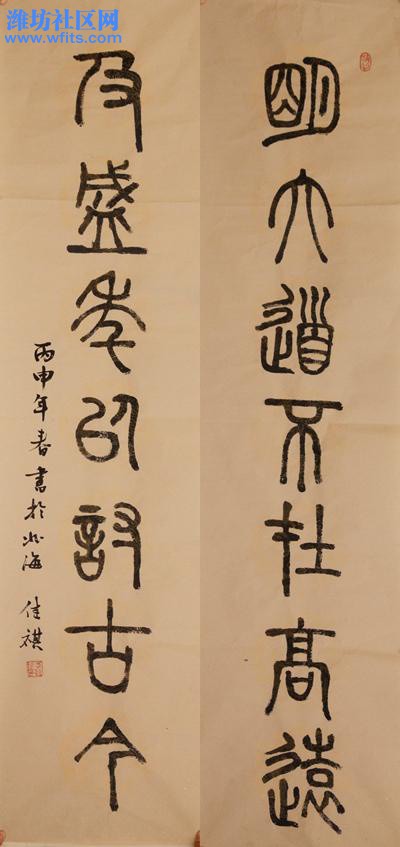 潍坊社区网
www.wfits.com
明大道不在高遠
及盛年以討古今
丙申年春書於北海 佳祺